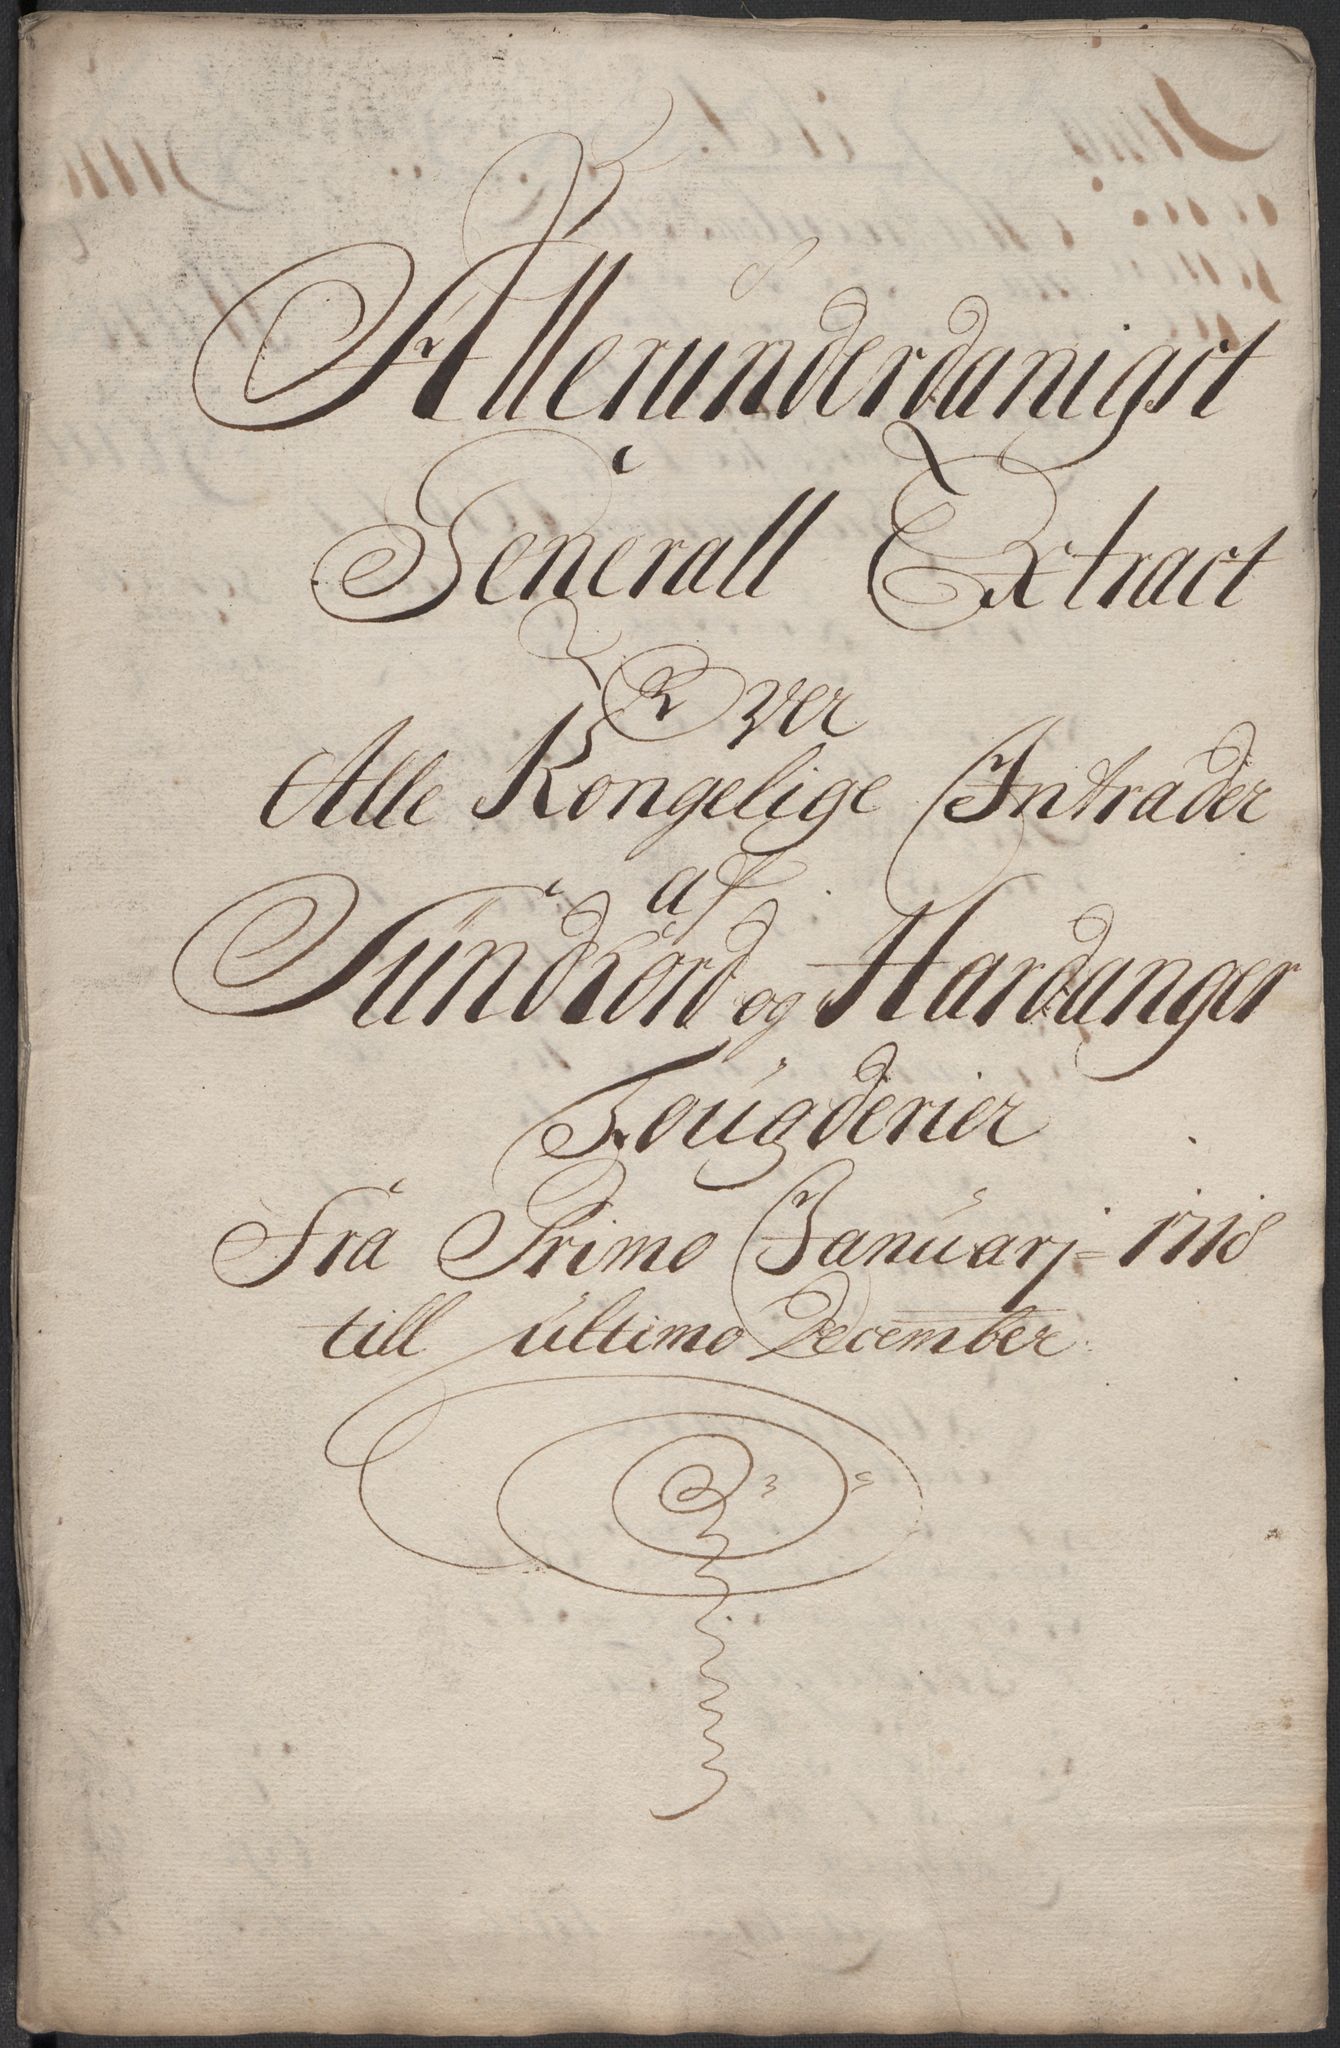 Allerunderdanigst
Generall Extract
Over
Alle Kongelige Intrader
af
Sundhord og Hardanger
Fougderier
Fra Primo Januarj 1718
till ultimo December